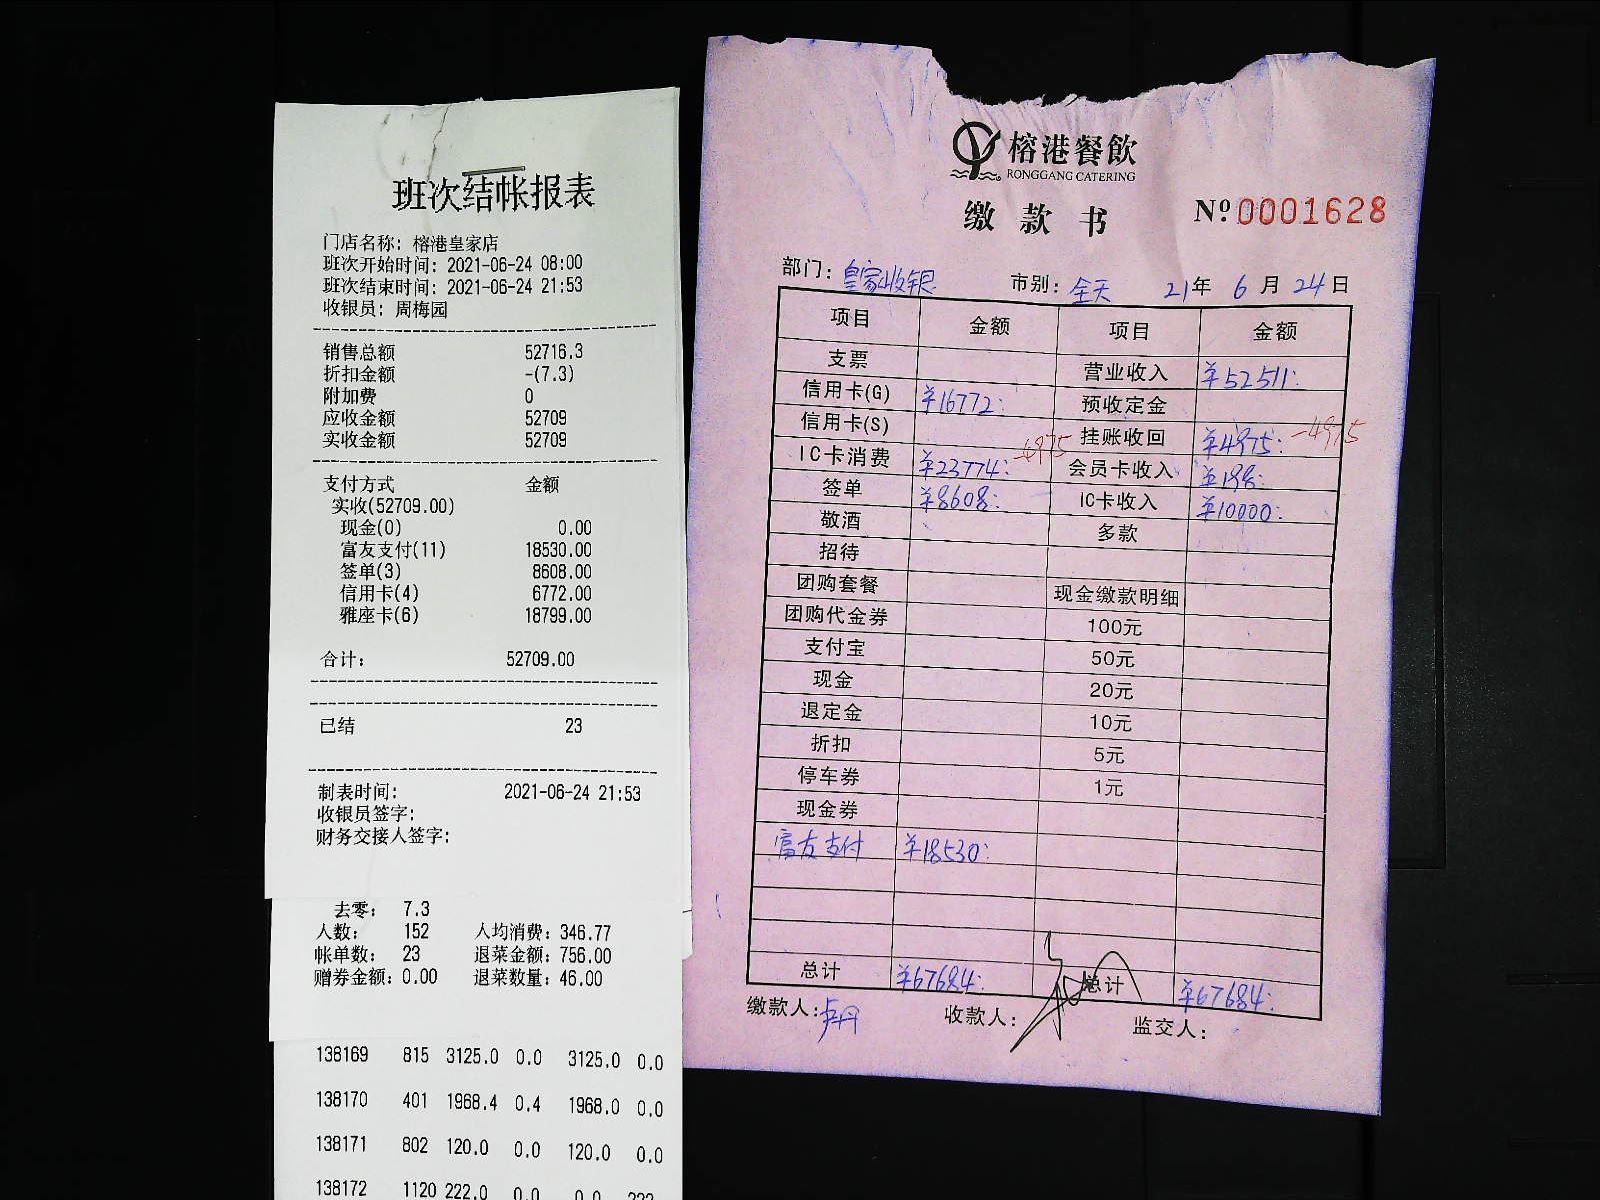 班次结帐报表
门店名称: 榕港皇家店
班次开始时间: 2021-06-24 08:00
班次结束时间: 2021-06-24 21:53
收银员: 周梅园
销售总额 52716.3
折扣金额 -(7.3)
附加费 0
应收金额 52709
实收金额 52709
支付方式 金额
实收(52709.00)
现金(0) 0.00
富友支付(11) 18530.00
签单(3) 8608.00
信用卡(4) 6772.00
雅座卡(6) 18799.00
合计: 52709.00
已结 23
制表时间: 2021-06-24 21:53
收银员签字:
财务交接人签字:
去零: 7.3
人数: 152 人均消费: 346.77
帐单数: 23 退菜金额: 756.00
赠券金额: 0.00 退菜数量: 46.00
138169 815 3125.0 0.0 3125.0 0.0
138170 401 1968.4 0.4 1968.0 0.0
138171 802 120.0 0.0 120.0 0.0
138172 1120 222.0 0.0 0.0 222
榕港餐飲
RONGGANG CATERING
缴款书 Nº 0001628
部门: 皇家收银 市别: 全天 21年 6月 24日
项目 金额 项目 金额
支票 营业收入 ¥52511:
信用卡(G) ¥16772: 预收定金
信用卡(S) -4975 挂账收回 ¥4975: -4975
IC卡消费 ¥23774: 会员卡收入 ¥198:
签单 ¥8608: IC卡收入 ¥10000:
敬酒 多款
招待
团购套餐 现金缴款明细
团购代金券 100元
支付宝 50元
现金 20元
退定金 10元
折扣 5元
停车券 1元
现金券
富友支付 ¥18530:
总计 ¥67684: 总计 ¥67684:
缴款人: 收款人: 监交人: